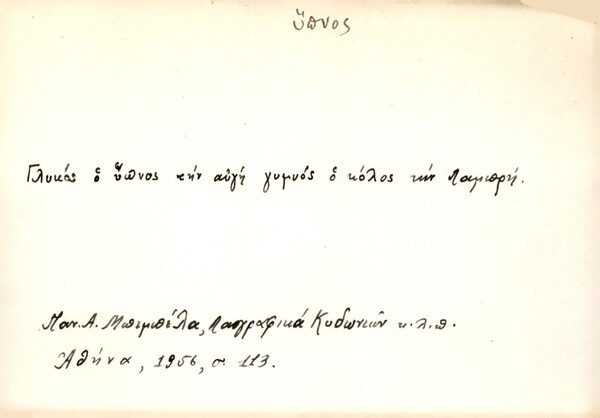 ὕπνος
Γλυκός ὁ ὕπνος τήν αὐγή γυμνός ὁ κόλος τήν Λαμπρή.
Παν. Α. Μπεμπέλα, Λαογραφικά Κυδωνιῶν κ.λ.π.
Ἀθήνα, 1956, σ 113.